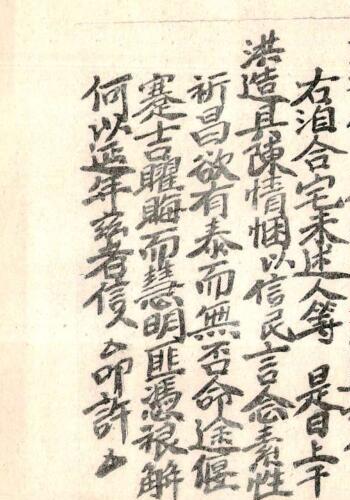 右洎合宅未述人等　是日上干
洪造具陳情悃以信民言念素性
祈昌欲有泰而無否命途偃
蹇吉曜晦而慧明匪憑禳解
何以延年兹者信人厶叩許厶